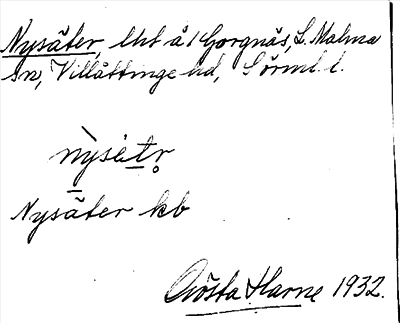 Nysäter, lht å 1 Gorgnäs, L. Malma
sn, Villåttinge hd, Sörml. l.
nỳsetr̥
Nysäter kb
Gösta Harne 1932.